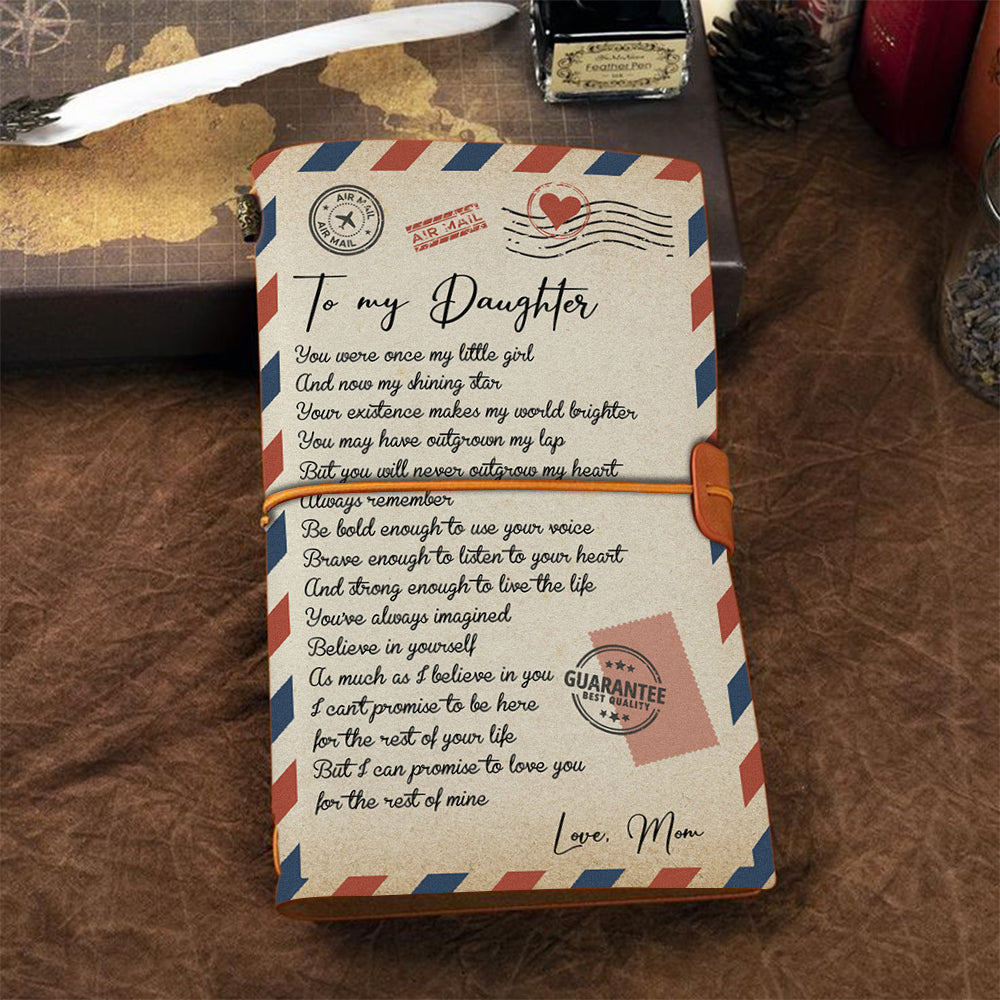 Feather Pen
AIR MAIL
AIR MAIL
AIR MAIL
To my Daughter
You were once my little girl
And now my shining star
Your existence makes my world brighter
You may have outgrown my lap
But you will never outgrow my heart
Always remember
Be bold enough to use your voice
Brave enough to listen to your heart
And strong enough to live the life
You've always imagined
Believe in yourself
As much as I believe in you
I can't promise to be here
for the rest of your life
But I can promise to love you
for the rest of mine
GUARANTEE
BEST QUALITY
Love, Mom